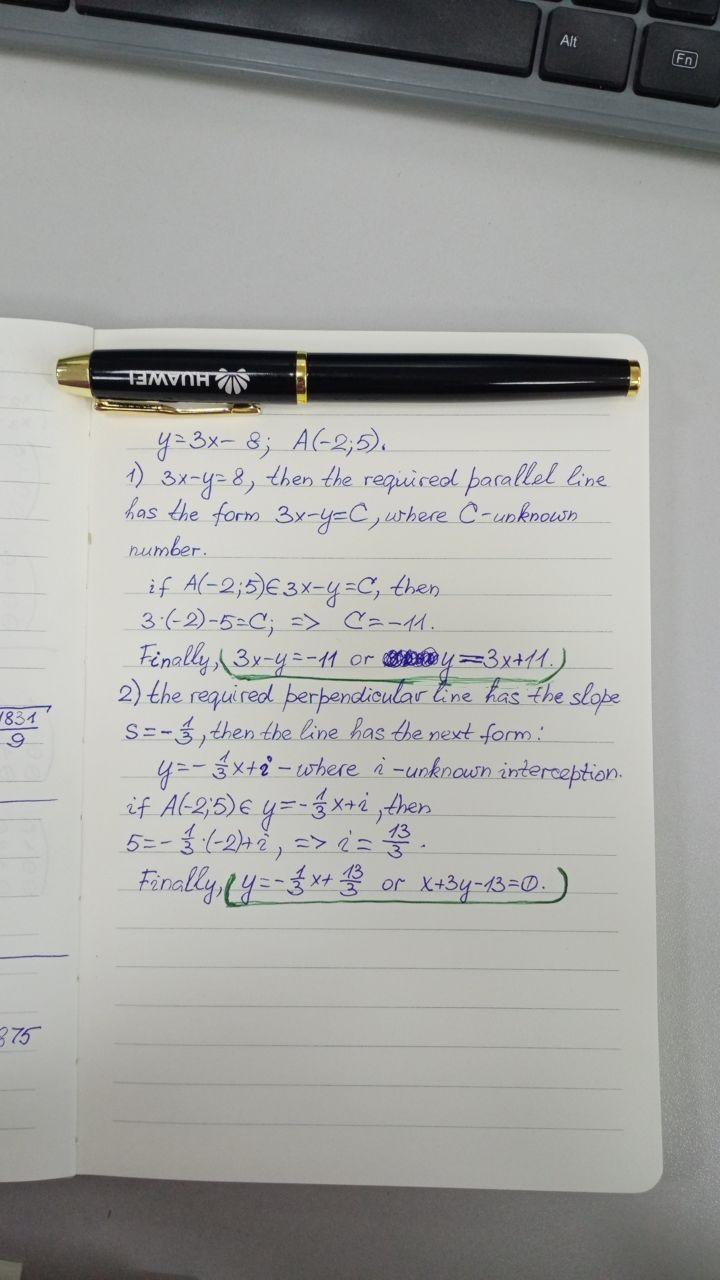 Alt
Fn
HUAWEI
y=3x-8; A(-2;5).
1) 3x-y=8, then the required parallel line
has the form 3x-y=C, where C-unknown
number.
if A(-2;5)∈3x-y=C, then
3·(-2)-5=C; => C=-11.
Finally, (3x-y=-11 or y=3x+11.)
2) the required perpendicular line has the slope
S=-1/3, then the line has the next form:
y=-1/3x+i - where i-unknown interception.
if A(-2;5)∈ y=-1/3x+i, then
5=-1/3·(-2)+i, => i=13/3.
Finally, (y=-1/3x+13/3 or x+3y-13=0.)
1831
9
875